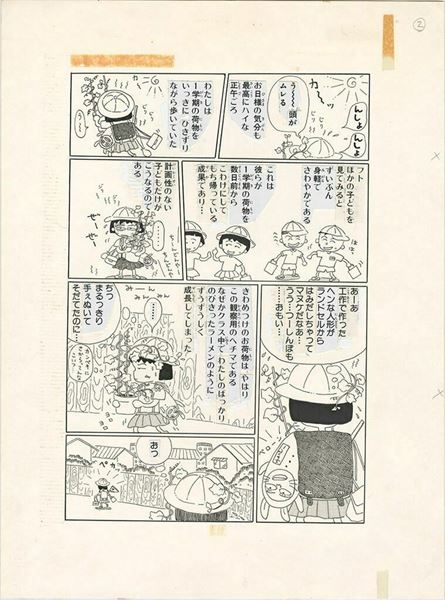 ②
んしょ
んしょ
う〜〜〜頭が
ムレる
お日様の気分も
最高にハイな
正午ごろ
わたしは
1学期の荷物を
いっきに ひきずり
ながら歩いていた
フト
ほかの子どもを
見てみると
ずいぶん
身軽で
さわやかである
これは
彼らが
1学期の荷物を
数日前から
こわけにして
もち帰っている
成果であり…
計画性のない
子どもだけが
こうなるので
ある
ぜーぜー
あーあ
工作で作った
ヘンな人形が
ランドセルから
はみだしちゃって
マヌケだなあ…
うう…つーしんぼも
おもい……
きわめつけのお荷物は やはり
この観察用のヘチマである
なぜかクラス中でわたしのばっかり
のびきったラーメンのように
ずうずうしく
成長してしまった
みーん
みーん
ちっ
まるっきり
手えぬいて
そだてたのに…
おっ
ペカッ